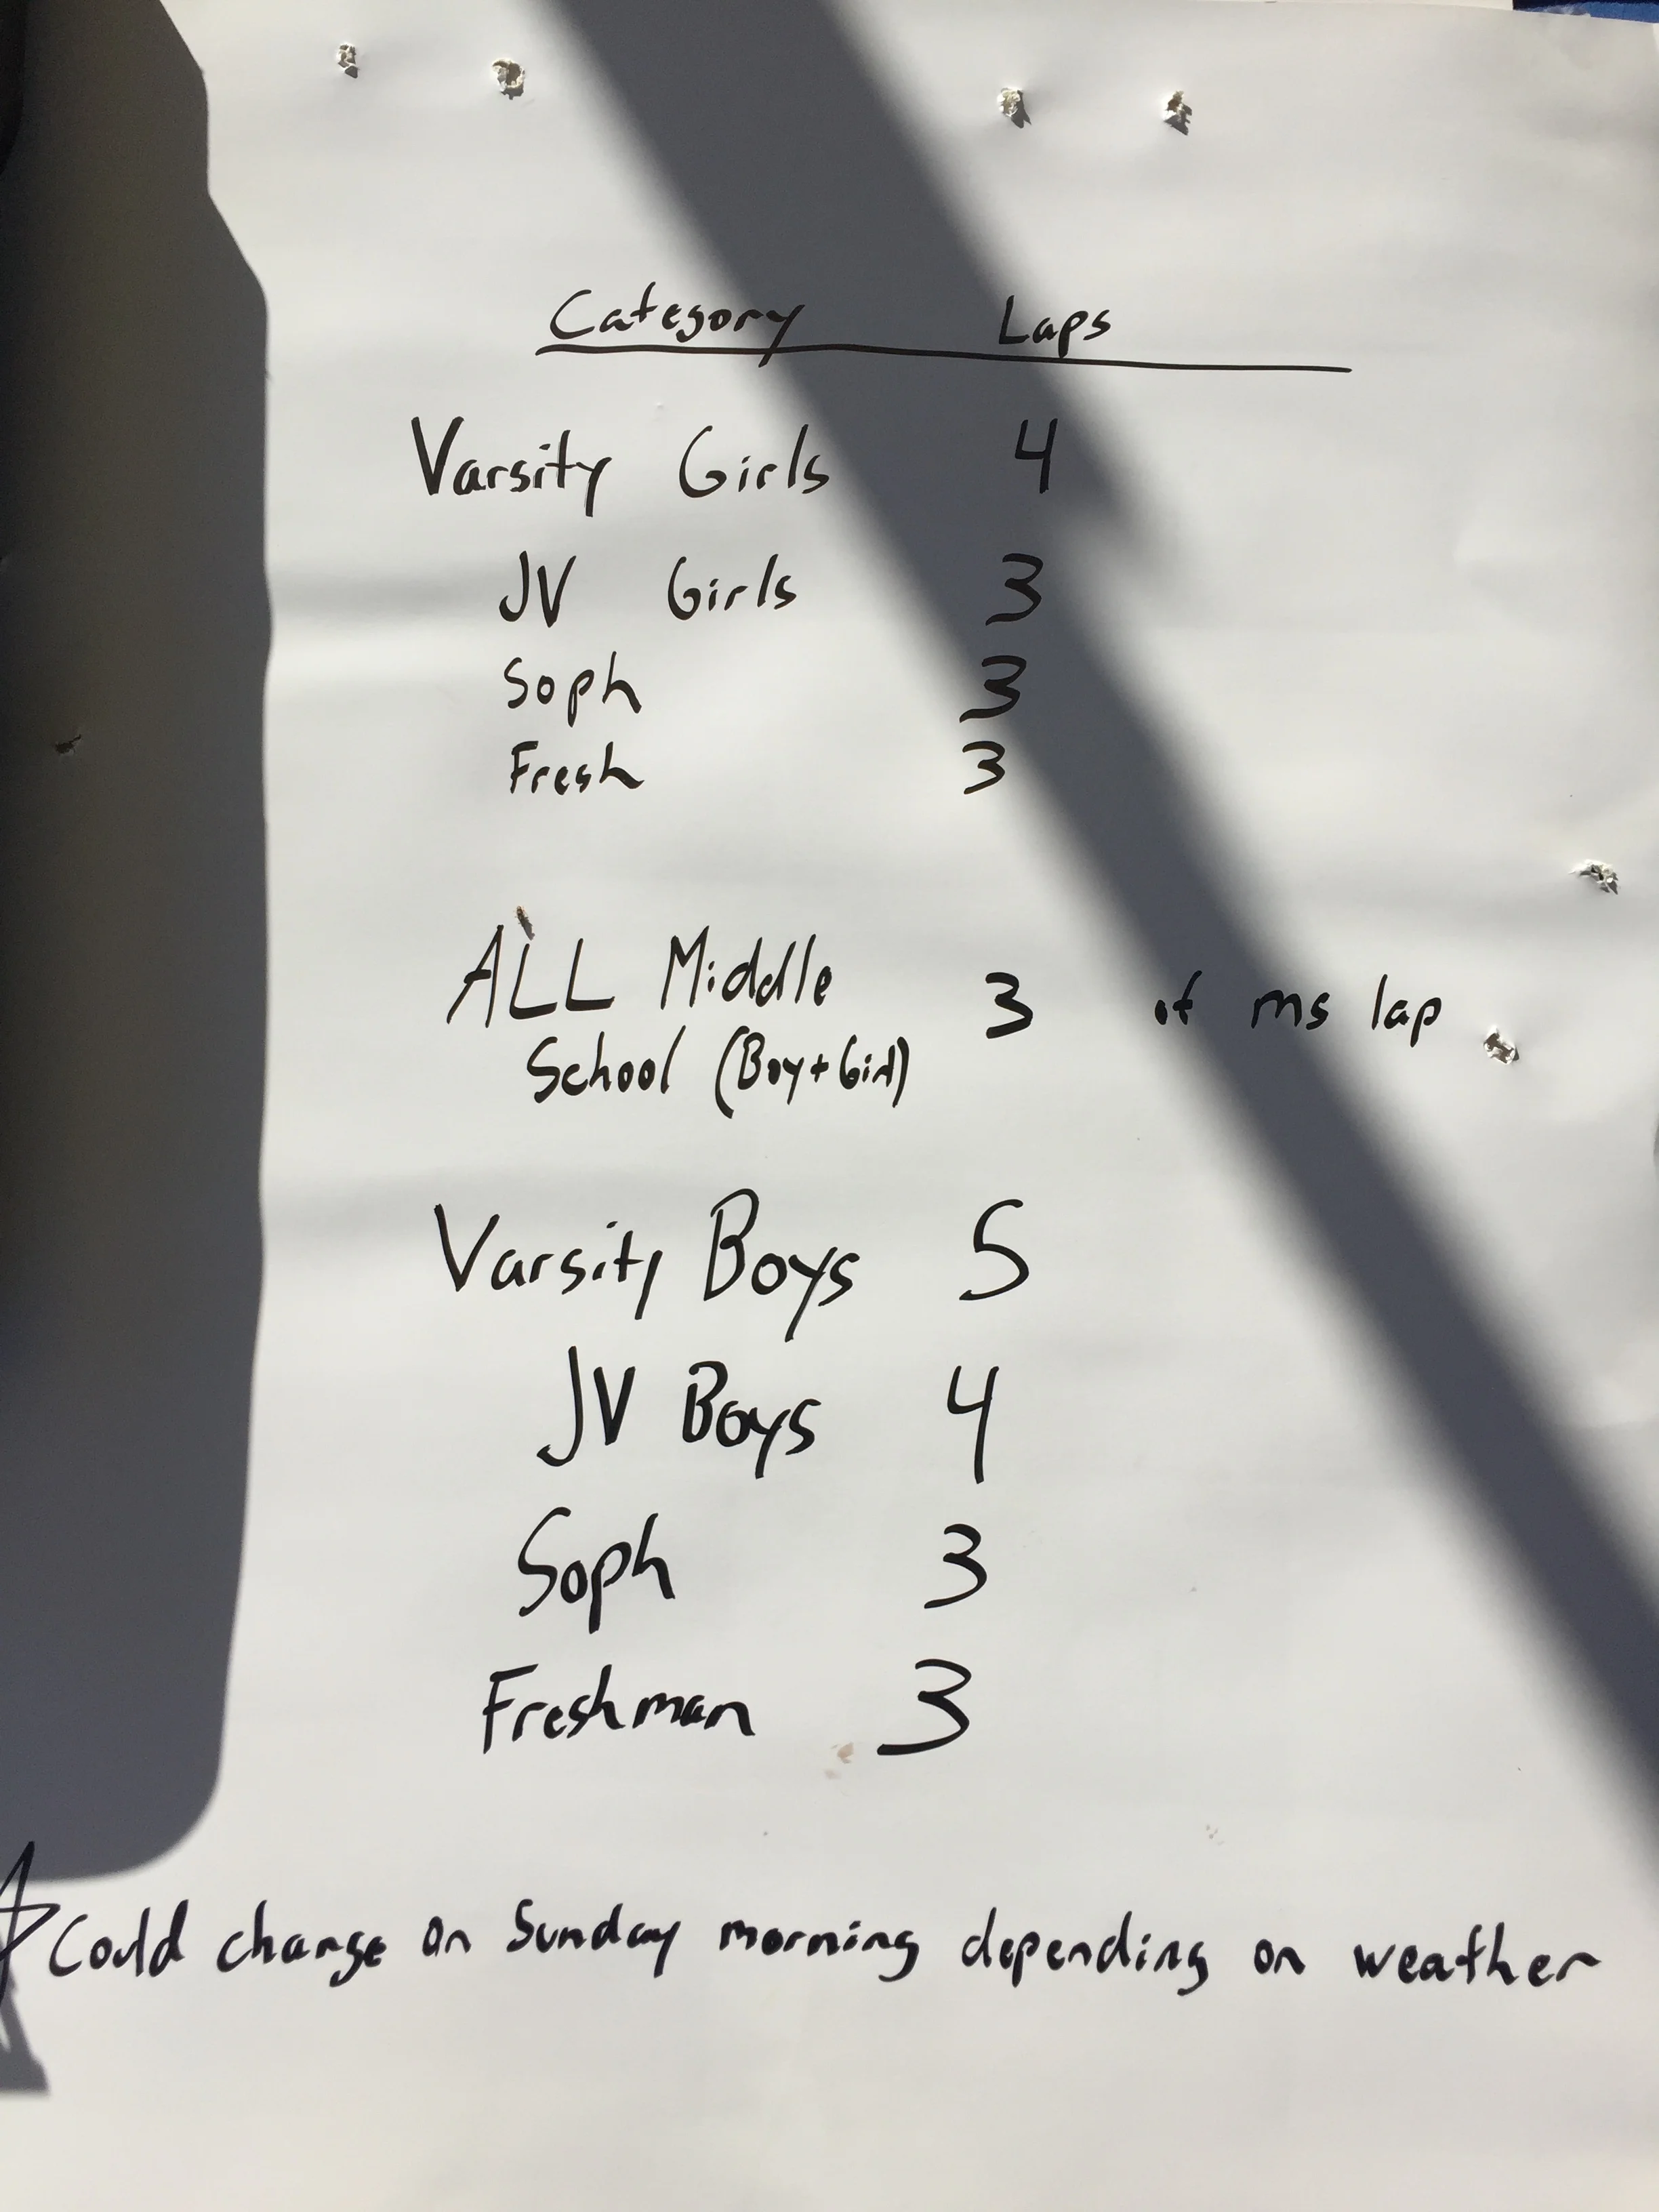 Category Laps
Varsity Girls 4
JV Girls 3
Soph 3
Fresh 3
ALL Middle 3 of ms lap
School (Boy+Girl)
Varsity Boys 5
JV Boys 4
Soph 3
Freshman 3
Could change on Sunday morning depending on weather